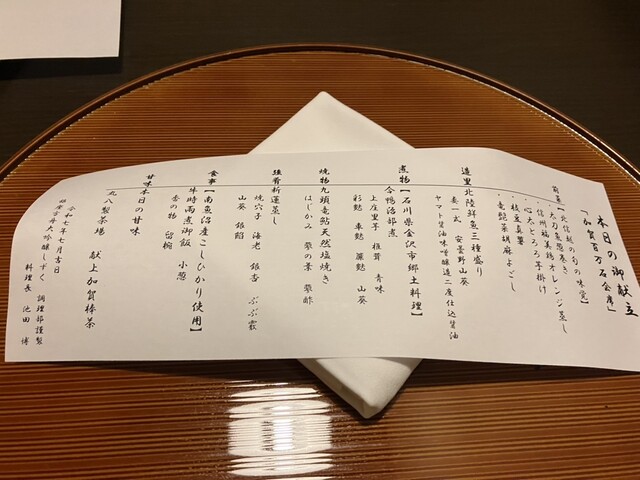 本日の御献立
「加賀百万石会席」
前菜【北信越の旬の味覚】
・太刀魚葱巻き
・信州福美鶏オレンジ蒸し
・心太とろろ芋掛け
・枝豆真薯
・竜飴菜胡麻よごし
造里 北陸鮮魚三種盛り
妻一式 安曇野山葵
ヤマト醤油味噌醸造二度仕込醤油
煮物【石川県金沢市郷土料理】
合鴨治部煮
上庄里芋 椎茸 青味
彩麩 車麩 簾麩 山葵
焼物 九頭竜鮎天然塩焼き
はじかみ 蓼の葉 蓼酢
強肴 祈運蒸し
焼穴子 海老 銀杏 ぶぶ霰
山葵 銀餡
食事【南魚沼産こしひかり使用】
牛時雨煮御飯 小葱
香の物 留椀
甘味 本日の甘味
丸八製茶場 献上加賀棒茶
令和七年七月吉日
大吟醸しずく 調理部謹製
料理長 池田 博